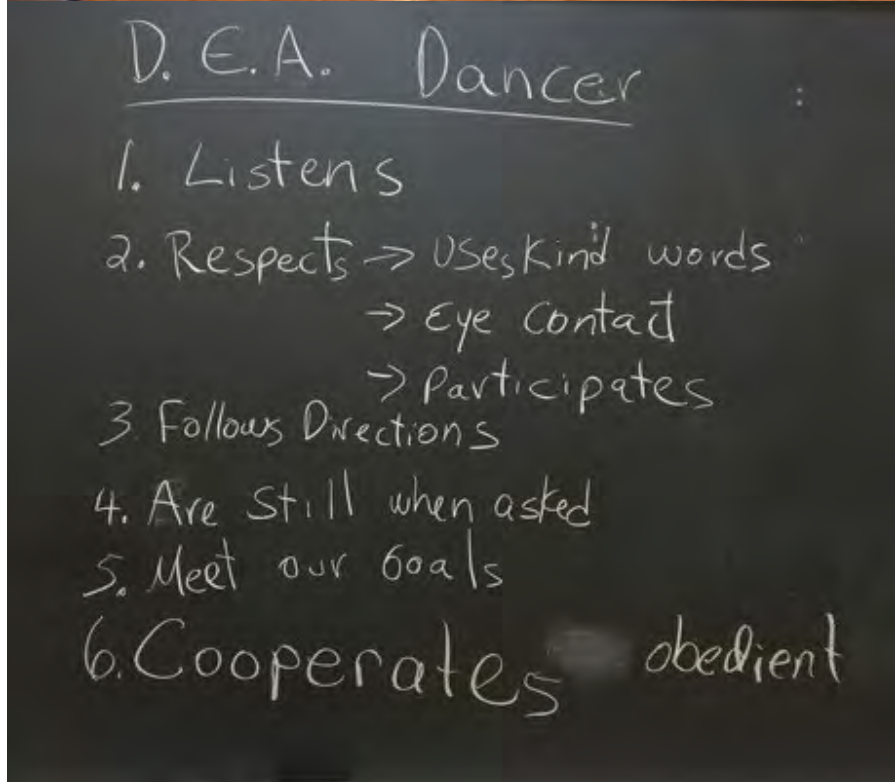 D.E.A. Dancer
1. Listens
2. Respects → Uses Kind words
→ Eye Contact
→ Participates
3. Follows Directions
4. Are Still when asked
5. Meet our Goals
6. Cooperates obedient